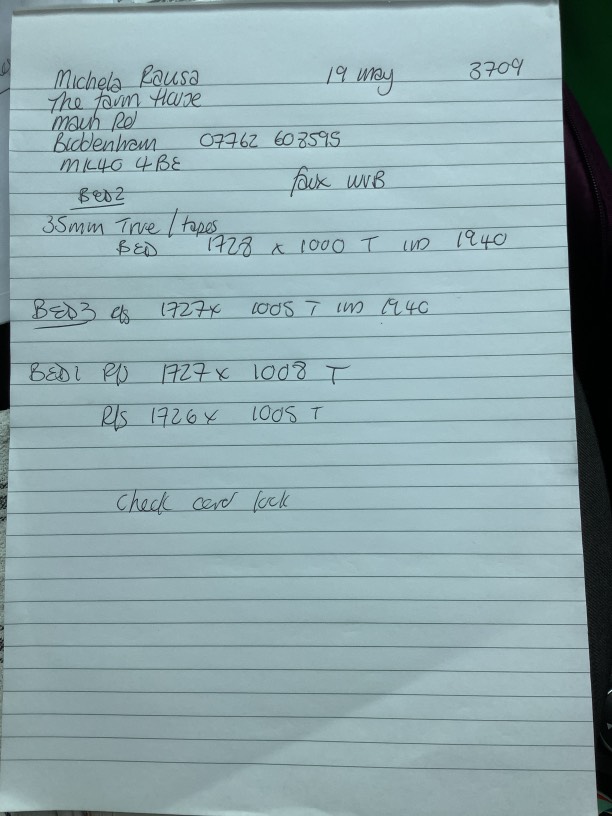 Michela Rausa 19 may 3709
The farm House
main Rd
Biddenham 07762 608595
MK40 4BE
faux WVB
BED2
35mm True / tapes
BED 1728 x 1000 T IM 1940
BED3 e/s 1727x 1005 T IM 1940
BED1 P/S 1727x 1008 T
R/S 1726x 1005 T
check cord lock